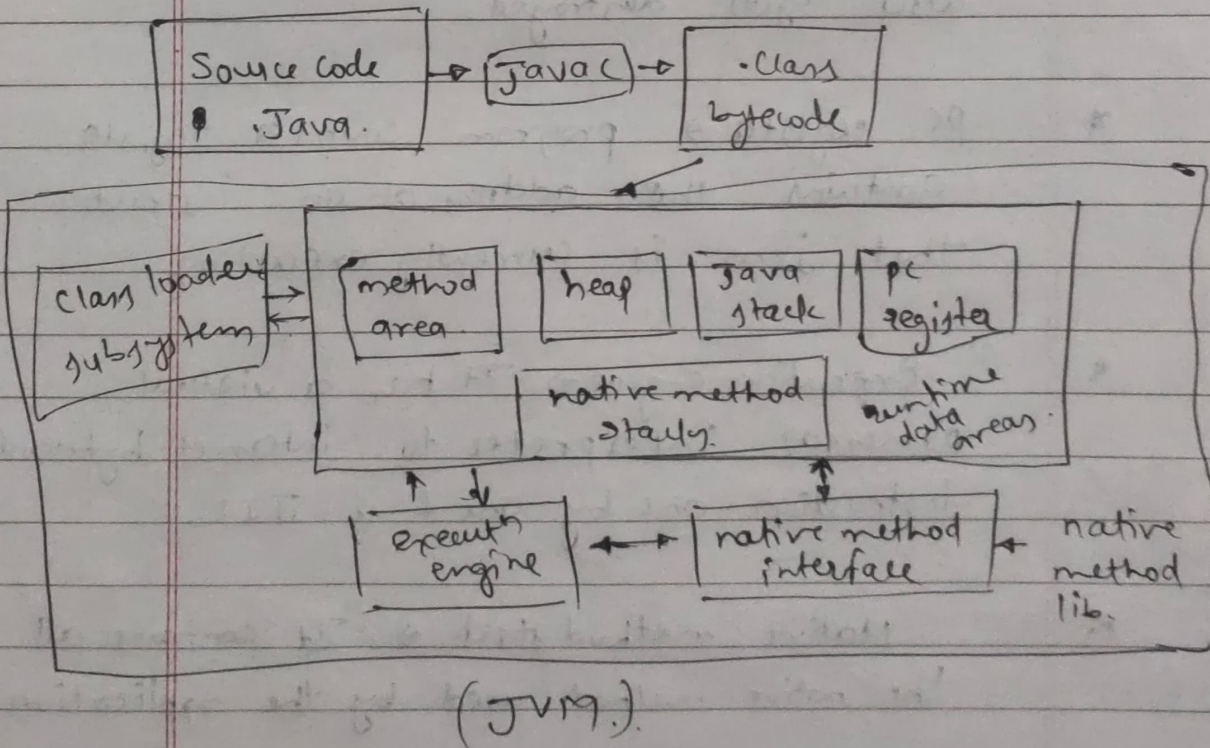 Source code
.Java.
Javac
.Class
bytecode.
class loader
subsystem
method
area.
heap
Java
stack
pc
register
native method
runtime
data
areas.
execut^n
engine
native method
interface
native
method
lib.
(JVM.)